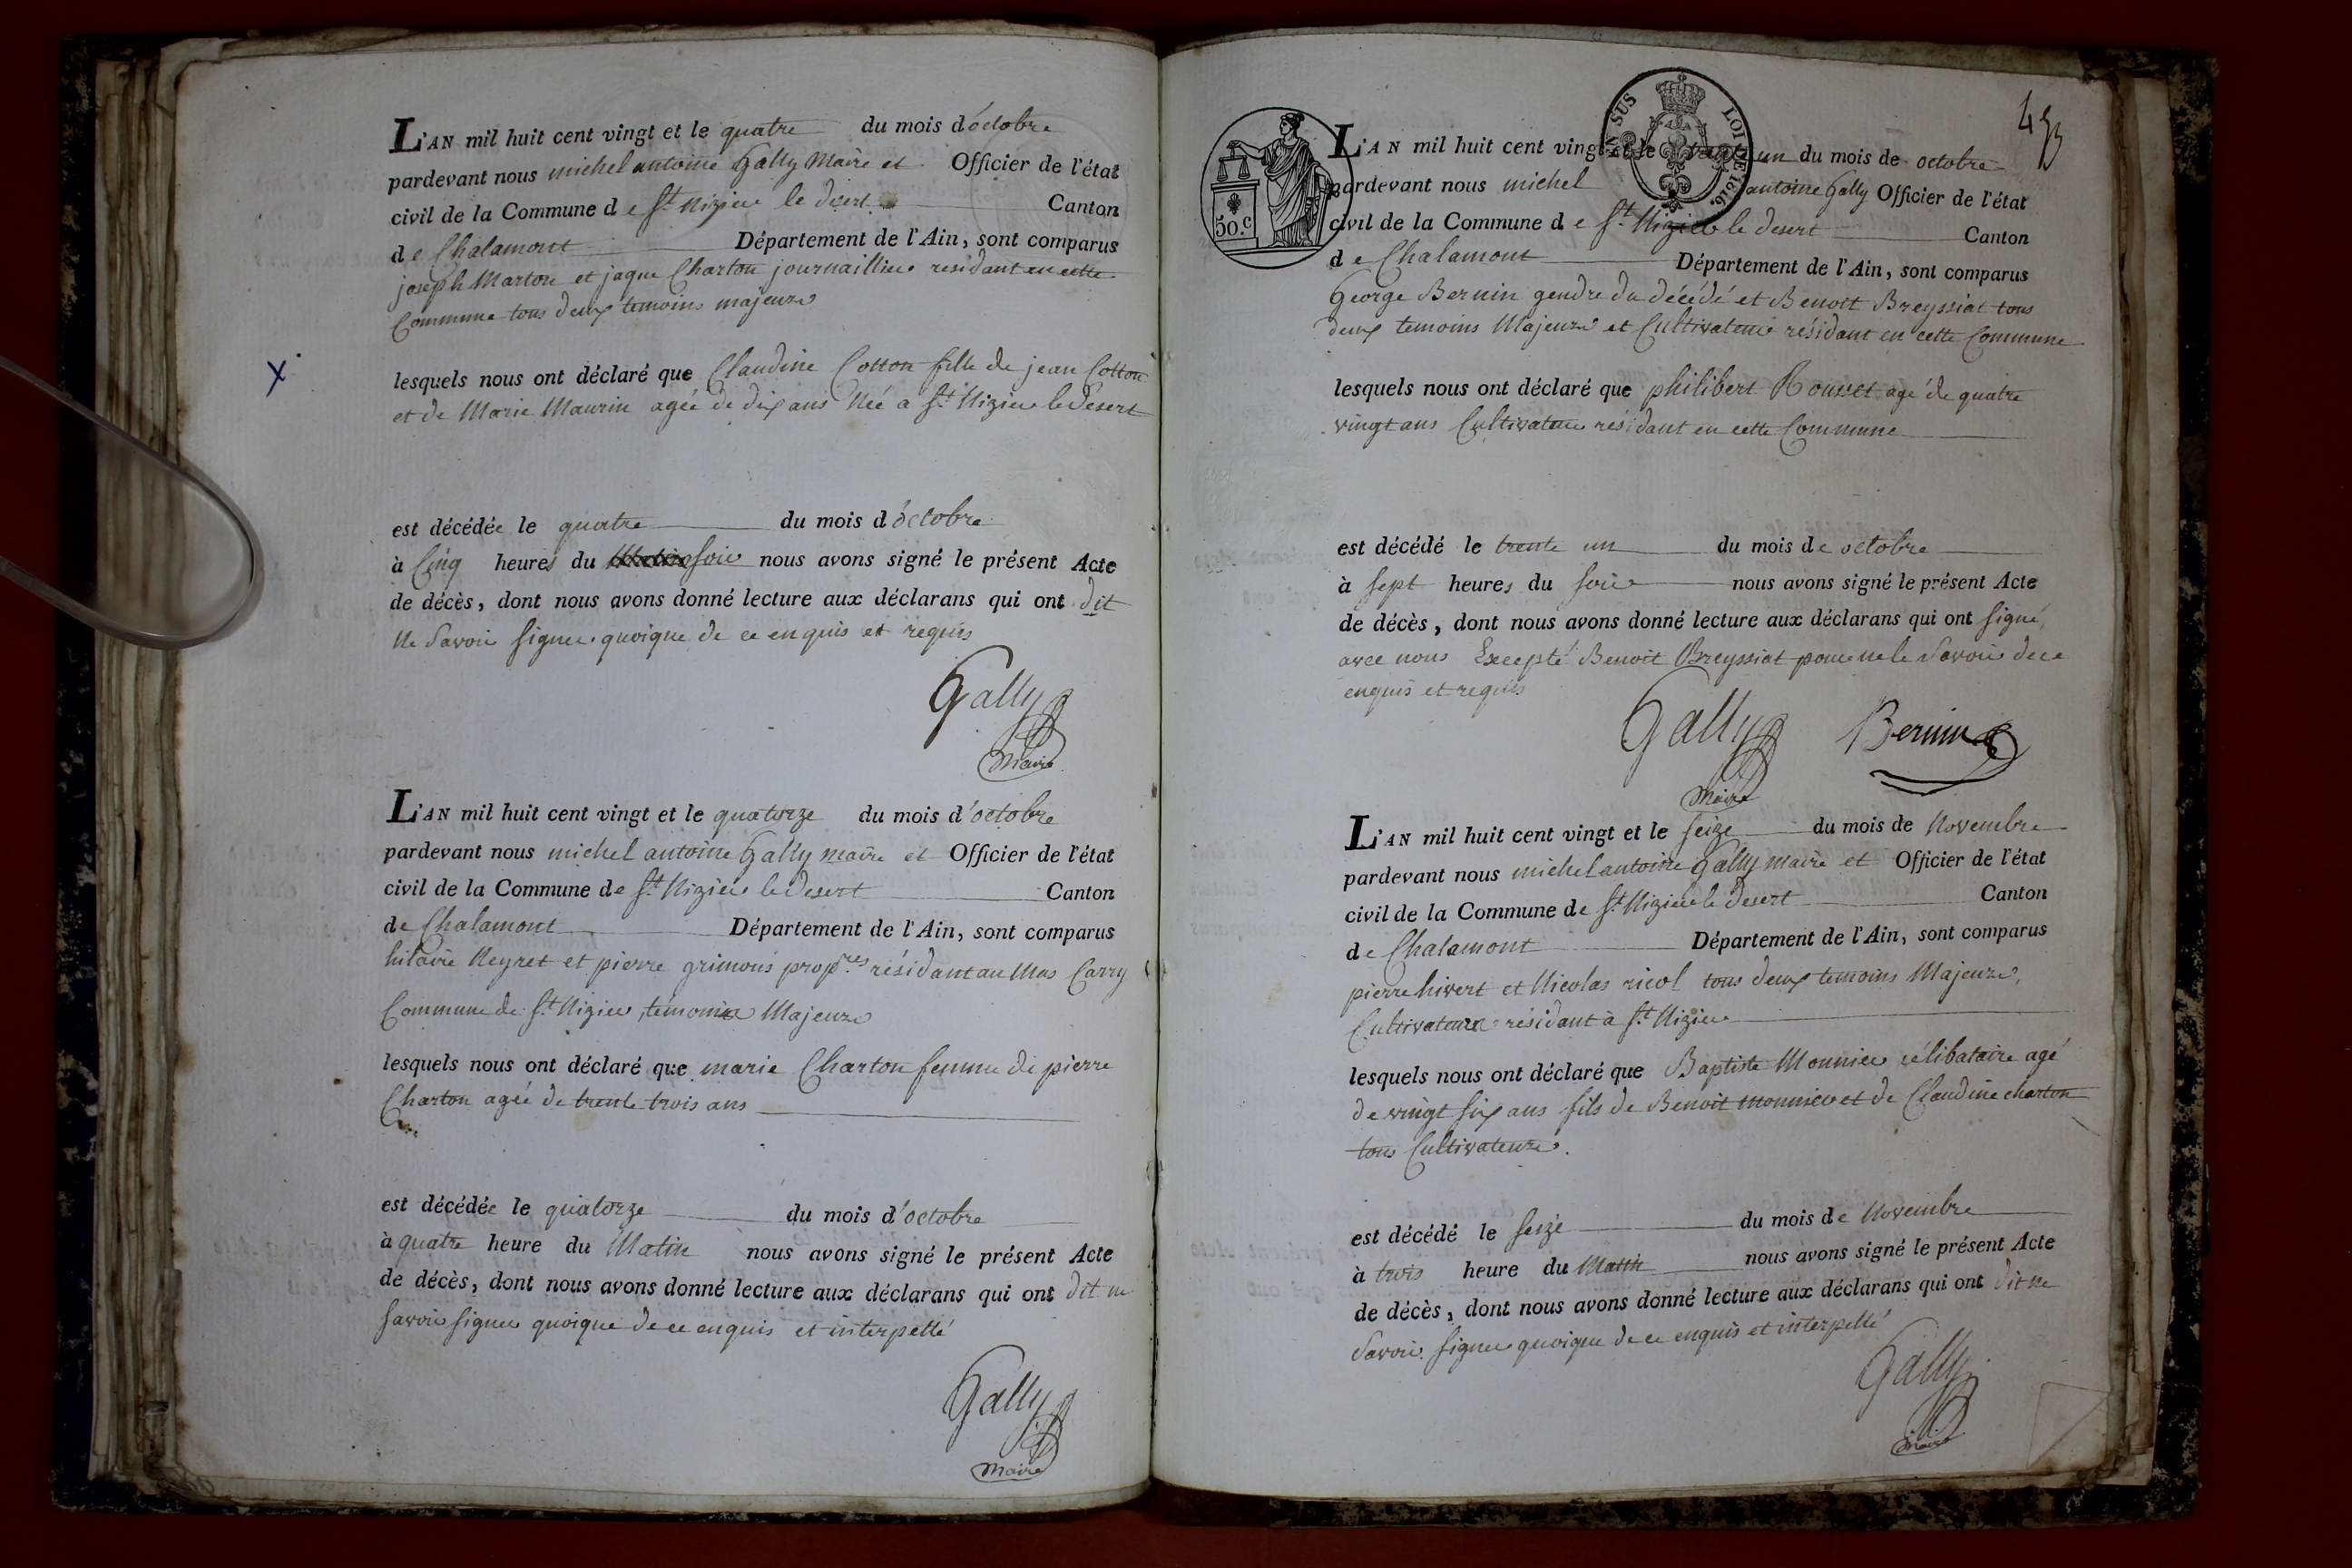 L'AN mil huit cent vingt et le quatre du mois d'octobre
pardevant nous michel antoine Gally Maire et Officier de l'état
civil de la Commune de St. Nizier le desert Canton
de Chalamont Département de l'Ain, sont comparus
joseph Marton et jaque Charton journaillier residant en cette
Commune tous deux temoins majeurs
lesquels nous ont déclaré que Claudine Cotton fille de jean Cotton
et de Marie Maurin agée de dix ans Née a St. Nizier le Desert
est décédée le quatre du mois d'octobre
à Cinq heures du soir nous avons signé le présent Acte
de décès, dont nous avons donné lecture aux déclarans qui ont dit
Ne Savoir signer quoique de ce enquis et requis
Gally
Maire
L'AN mil huit cent vingt et le quatorze du mois d'octobre
pardevant nous michel antoine Gally maire et Officier de l'état
civil de la Commune de St. Nizier le Desert Canton
de Chalamont Département de l'Ain, sont comparus
hilaire Neyret et pierre grimons propres résidant au Mas Carry
Commune de St. Nizier, témoins Majeurs
lesquels nous ont déclaré que marie Charton femme de pierre
Charton agée de trente trois ans
est décédée le quatorze du mois d'octobre
à quatre heure du Matin nous avons signé le présent Acte
de décès, dont nous avons donné lecture aux déclarans qui ont dit ne
savoir signer quoique de ce enquis et interpellé
Gally
Maire
493
SUS LOI DE 1816.
50.c
L'AN mil huit cent vingt et le trente un du mois de octobre
pardevant nous michel antoine Gally Officier de l'état
civil de la Commune de St. Nizier le desert Canton
de Chalamont Département de l'Ain, sont comparus
George Bernin gendre du décédé et Benoit Breyssiat tous
deux temoins Majeurs et Cultivateur résidant en cette Commune
lesquels nous ont déclaré que philibert Rousset agé de quatre
vingt ans Cultivateur résidant en cette Commune
est décédé le trente un du mois de octobre
à sept heures du soir nous avons signé le présent Acte
de décès, dont nous avons donné lecture aux déclarans qui ont signé,
avec nous Excepté Benoit Breyssiat pour ne le Savoir de ce
enquis et requis
Gally Bernin
Maire
L'AN mil huit cent vingt et le seize du mois de Novembre
pardevant nous michel antoine Gally maire et Officier de l'état
civil de la Commune de St. Nizier le Desert Canton
de Chalamont Département de l'Ain, sont comparus
pierre hivert et Nicolas ricol tous deux temoins Majeurs,
Cultivateurs résidant à St. Nizier
lesquels nous ont déclaré que Baptiste Monnier célibataire agé
de vingt six ans fils de Benoit monnier et de Claudine charton
tous Cultivateurs.
est décédé le seize du mois de Novembre
à trois heure du Matin nous avons signé le présent Acte
de décès, dont nous avons donné lecture aux déclarans qui ont dit ne
Savoir signer quoique de ce enquis et interpellé
Gally
Maire